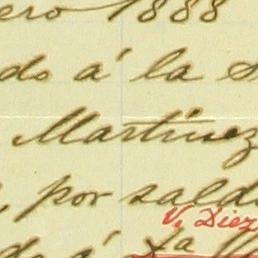 ero 1888
do á la S
Martinez
, por sald
V. Diez
do á Xª V